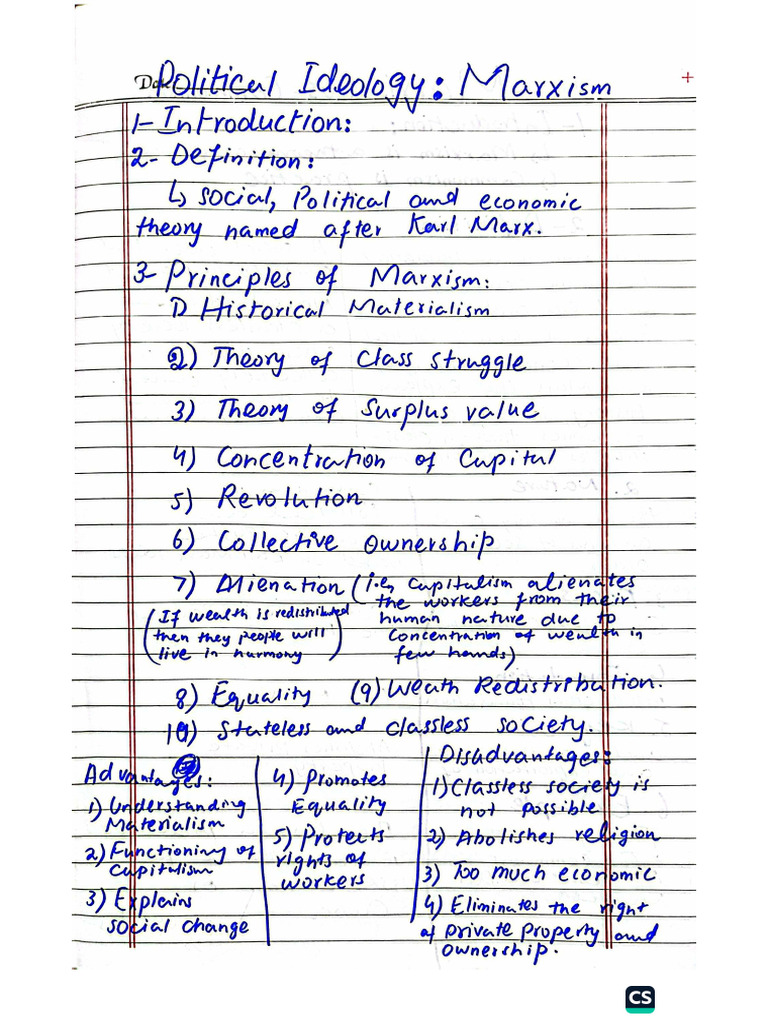 Political Ideology: Marxism
1- Introduction:
2- Definition:
↳ social, Political and economic
theory named after Karl Marx.
3- Principles of Marxism:
1) Historical Materialism
2) Theory of Class Struggle
3) Theory of Surplus value
4) Concentration of Capital
5) Revolution
6) Collective ownership
7) Alienation (i.e, capitalism alienates
the workers from their
human nature due to
concentration of wealth in
few hands)
(If wealth is redistributed
then they people will
live in harmony)
8) Equality (9) Weath Redistribution.
10) Stateless and classless society.
Advantages:
1) Understanding
Materialism
2) Functioning of
Capitalism
3) Explains
social change
4) Promotes
Equality
5) Protects
rights of
workers
Disadvantages:
1) Classless society is
not possible
2) Abolishes religion
3) Too much economic
4) Eliminates the right
of private property and
ownership.
CS